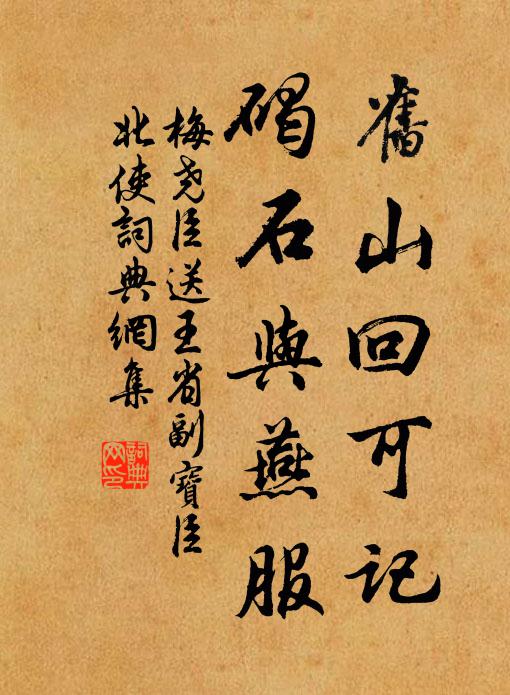 舊山回可記
碣石與燕服
梅堯臣送王省副寶臣
北使詞典網集
詞典